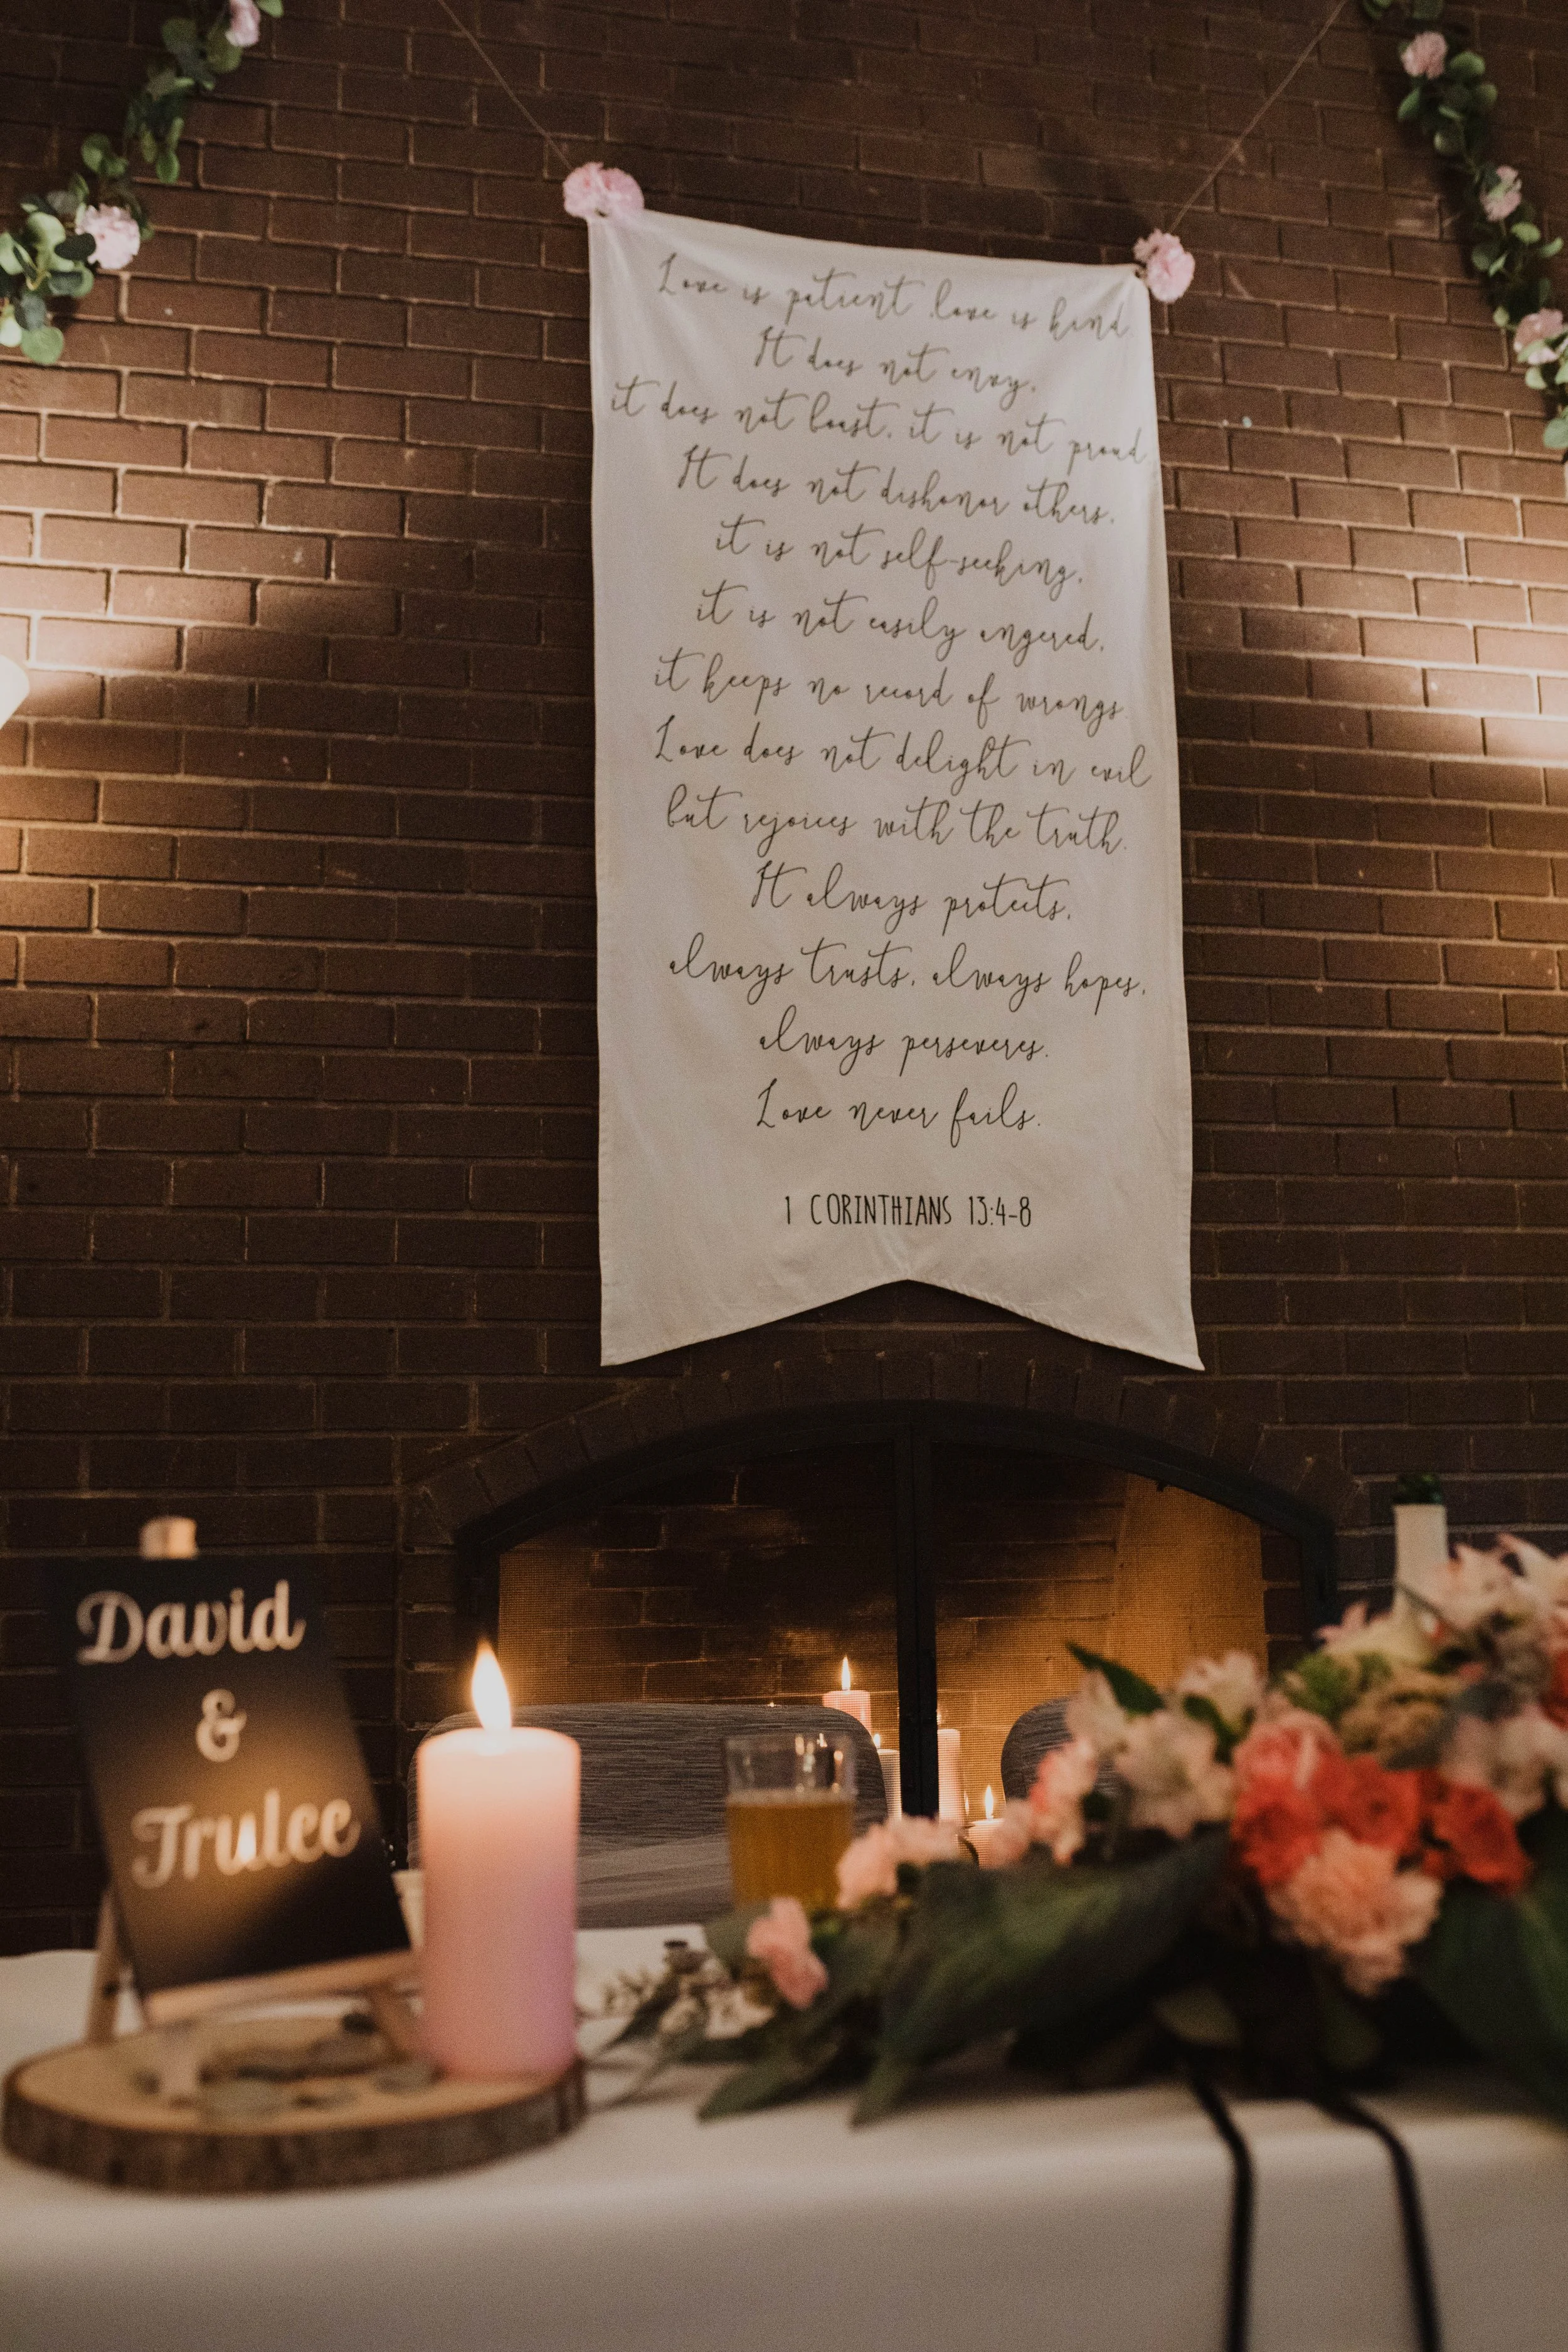 Love is patient, love is kind.
It does not envy,
it does not boast, it is not proud.
It does not dishonor others,
it is not self-seeking,
it is not easily angered,
it keeps no record of wrongs.
Love does not delight in evil
but rejoices with the truth.
It always protects,
always trusts, always hopes,
always perseveres.
Love never fails.
1 CORINTHIANS 13:4-8
David
&
Trulee